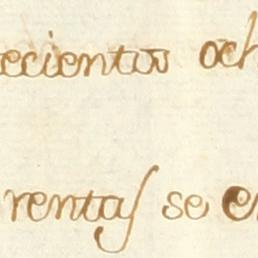 ecientos och
rentas se en